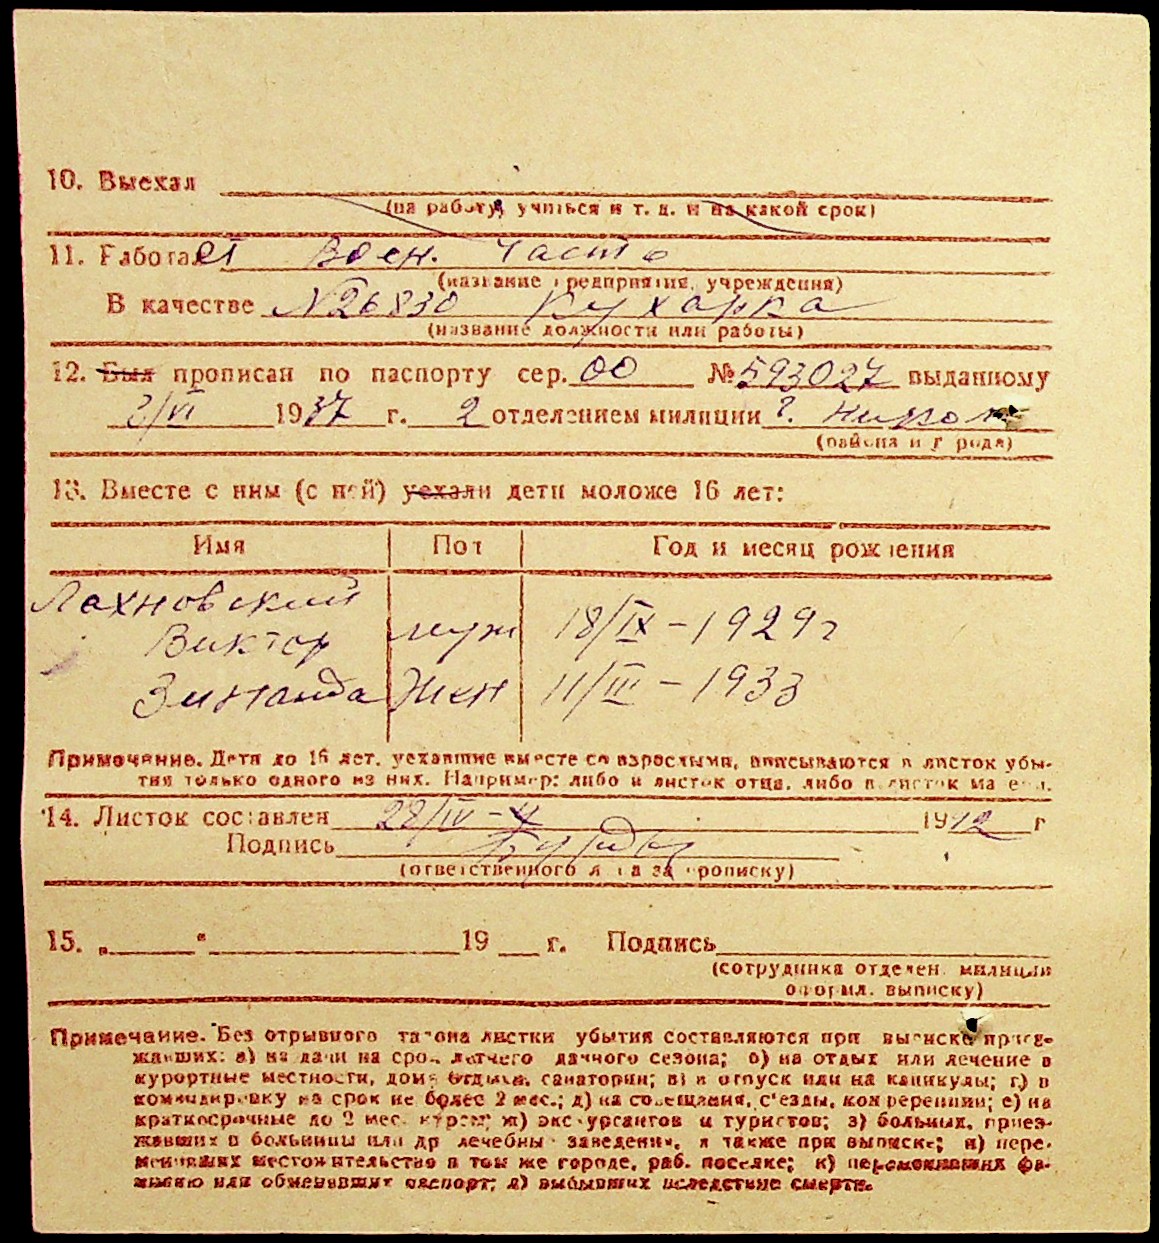 10. Выехал
(на работу, учиться и т. д. и на какой срок)
11. Работает Воен. часть
(название предприятия, учреждения)
В качестве №26830 Кухарка
(название должности или работы)
12. Был прописан по паспорту сер. 00 № 593027 выданному
2/VI 1937 г. 2 отделением милиции г.
(района и города)
13. Вместе с ним (с ней) уехали дети моложе 16 лет:
Имя Пол Год и месяц рождения
Лахновский
Виктор муж 18/IX - 1929 г
Зинаида Жен 11/III - 1933
Примечание. Дети до 16 лет, уехавшие вместе со взрослыми, вписываются в листок убы-
тия только одного из них. Например: либо в листок отца, либо в листок матери.
14. Листок составлен 28/IV - 1942 г
Подпись
(ответственного лица за прописку)
15. „ “ 19 г. Подпись
(сотрудника отделен. милиции
оформл. выписку)
Примечание. Без отрывного талона листки убытия составляются при выписке приез-
жавших: а) на дачи на срок летнего дачного сезона; б) на отдых или лечение в
курортные местности, дома отдыха, санатории; в) в отпуск или на каникулы; г) в
командировку на срок не более 2 мес.; д) на совещания, с'езды, конференции; е) на
краткосрочные до 2 мес. курсы; ж) экскурсантов и туристов; з) больных, приез-
жавших в больницы или др лечебны заведения, а также при выписке; и) пере-
менивших местожительство в том же городе, раб. поселке; к) переменивших фа-
милию или обменявших паспорт; л) выбывших вследствие смерти.